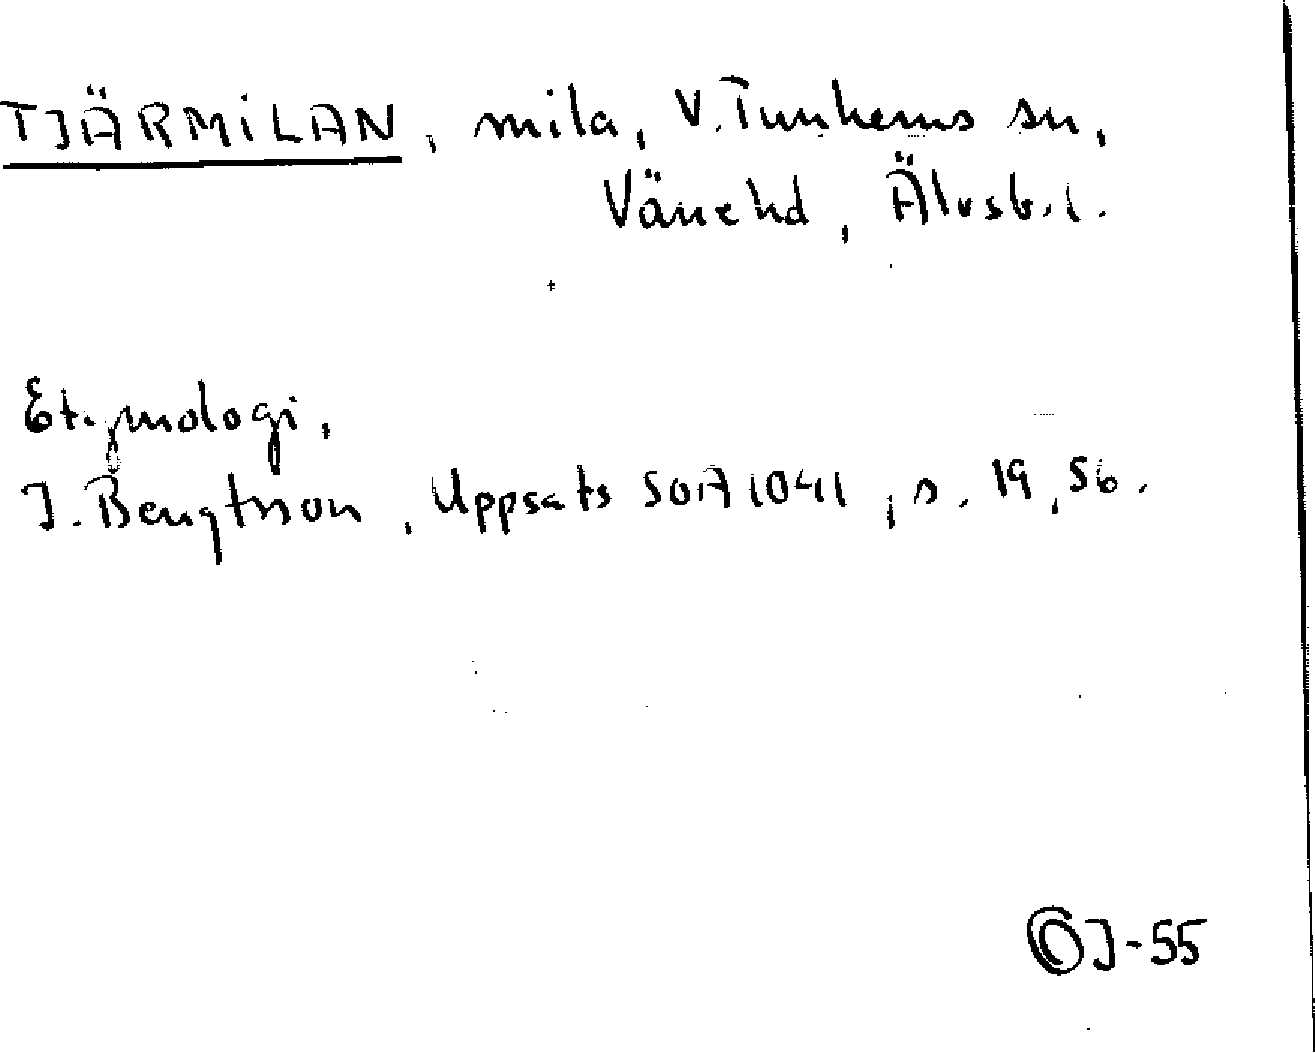 TJÄRMILAN, mila, V. Tunhems sn,
Väne hd, Älvsb. l.
Etymologi,
J. Bengtsson, Uppsats SOA 1041, s. 19, 56.
OJ-55